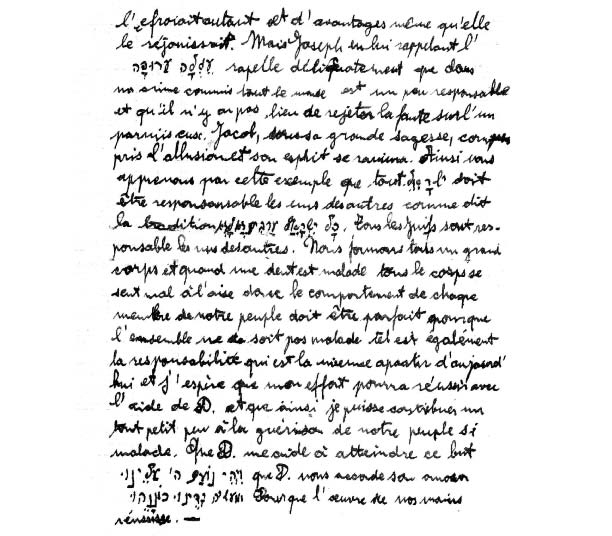 l'efroiait autant et d'avantages même qu'elle
le réjouissait. Mais Joseph en lui rappelant l'
עֶגְלָה עֲרוּפָה rapelle délicatement que dans
un crime commis tout le monde est un peu responsable
et qu'il n'y a pas lieu de rejeter la faute sur l'un
parmis eux. Jacob, dans sa grande sagesse, com
pris l'allusion et son esprit se ranima. Ainsi nous
apprenons par cette exemple que tout doit
être responsansable les uns des autres comme dit
la tradition כָּל יִשְׂרָאֵל. Tous les Juifs sont res-
ponsable les uns des autres. Nous formons tous un grand
corps et quand une dent est malade tous le corps se
sent mal à l'aise donc le comportement de chaque
membre de notre peuple doit être parfait pour que
l'ensemble ne soit pas malade tel est également
la responsabilité qui est la mienne apartir d'aujourd'
hui et j'espire que mon effort pourra réussir avec
l'aide de D. et que ainsi je puisse contribuer un
tout petit peu à la guérison de notre peuple si
malade. Que D. me aide à atteindre ce but
וִיהִי נוֹעַם ה' עָלֵינוּ que D. nous accorde son amour
וּמַעֲשֵׂה יָדֵינוּ כּוֹנְנֵהוּ Pour que l'œuvre de nos mains
réussisse. —